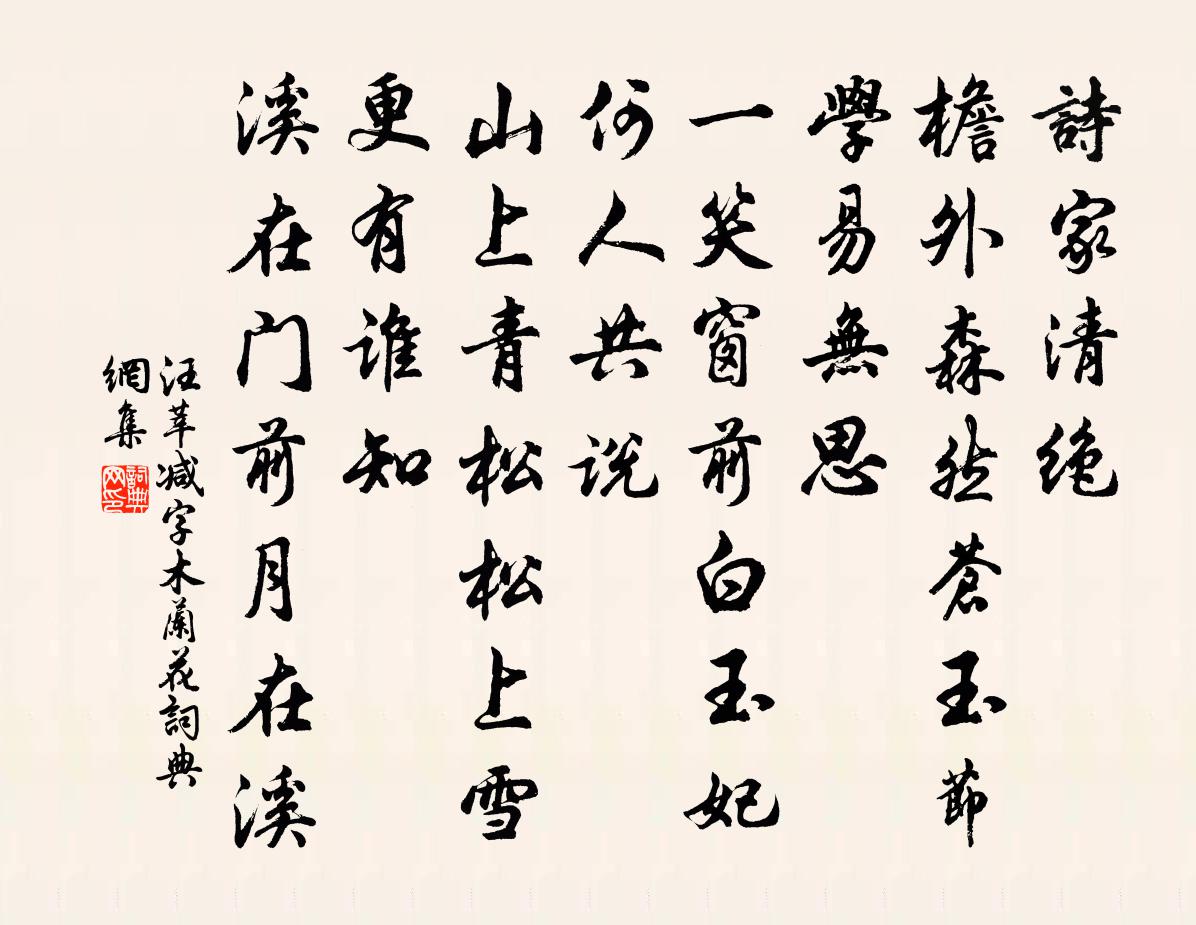 詩家清絶
檐外森然蒼玉節
學易無思
一笑窗前白玉妃
何人共説
山上青松松上雪
更有誰知
溪在门前月在溪
汪莘减字木蘭花詞典
網集
詞典
网印